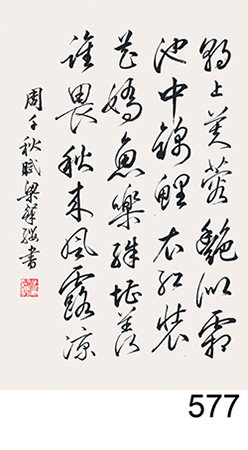 上芙蓉艷似霜
池中錦鯉衣紅裝
花嬌魚樂殊堪羨
誰畏秋來風露凉
周千秋賦梁粲纓書
577